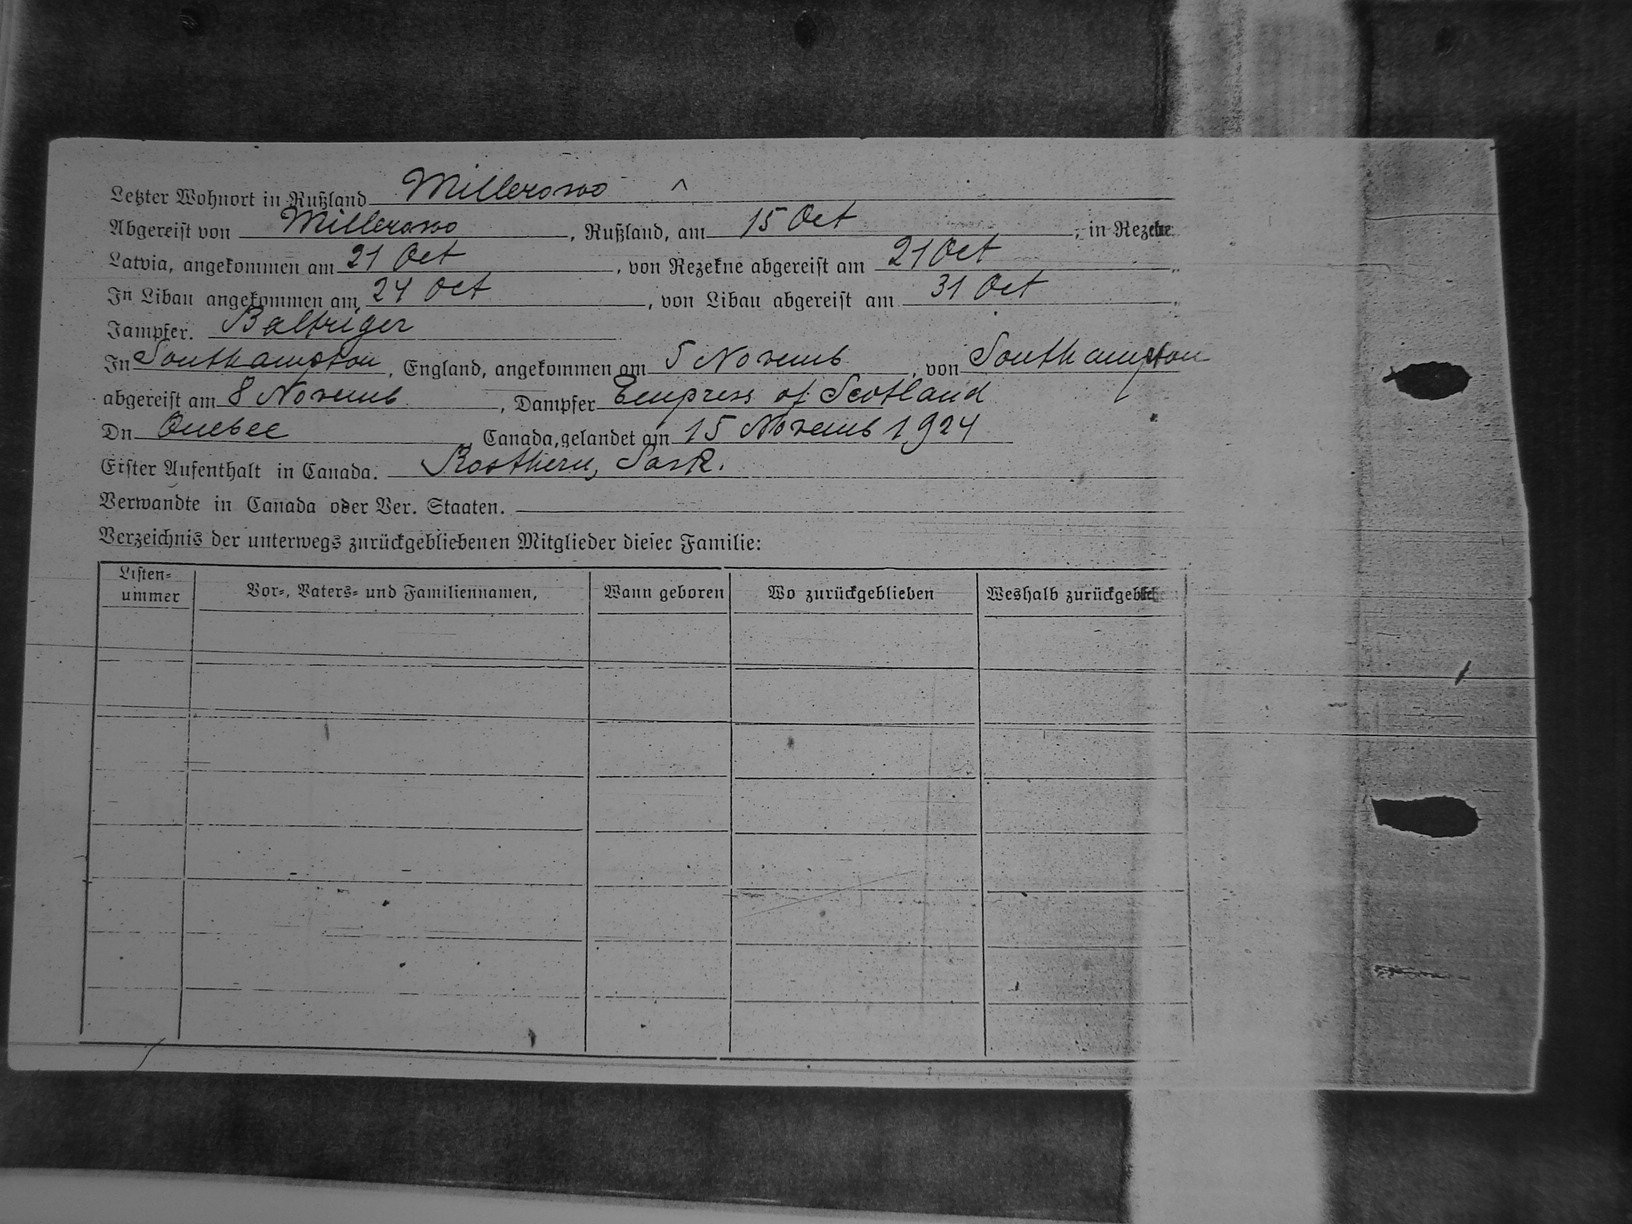 Letzter Wohnort in Rußland Millerowo
Abgereist von Millerowo, Rußland, am 15 Oct, in Rezekne
Latvia, angekommen am 21 Oct, von Rezekne abgereist am 21 Oct
In Libau angekommen am 24 Oct, von Libau abgereist am 31 Oct
Dampfer. Baltriger
In Southampton, England, angekommen am 5 Novemb, von Southampton
abgereist am 8 Novemb, Dampfer Empress of Scotland
In Quebec, Canada, gelandet am 15 Novemb 1924
Erster Aufenthalt in Canada. Rosthern, Sask.
Verwandte in Canada oder Ver. Staaten.
Verzeichnis der unterwegs zurückgebliebenen Mitglieder dieser Familie:
Listen-
ummer Vor-, Vaters- und Familiennamen, Wann geboren Wo zurückgeblieben Weshalb zurückgeblieben